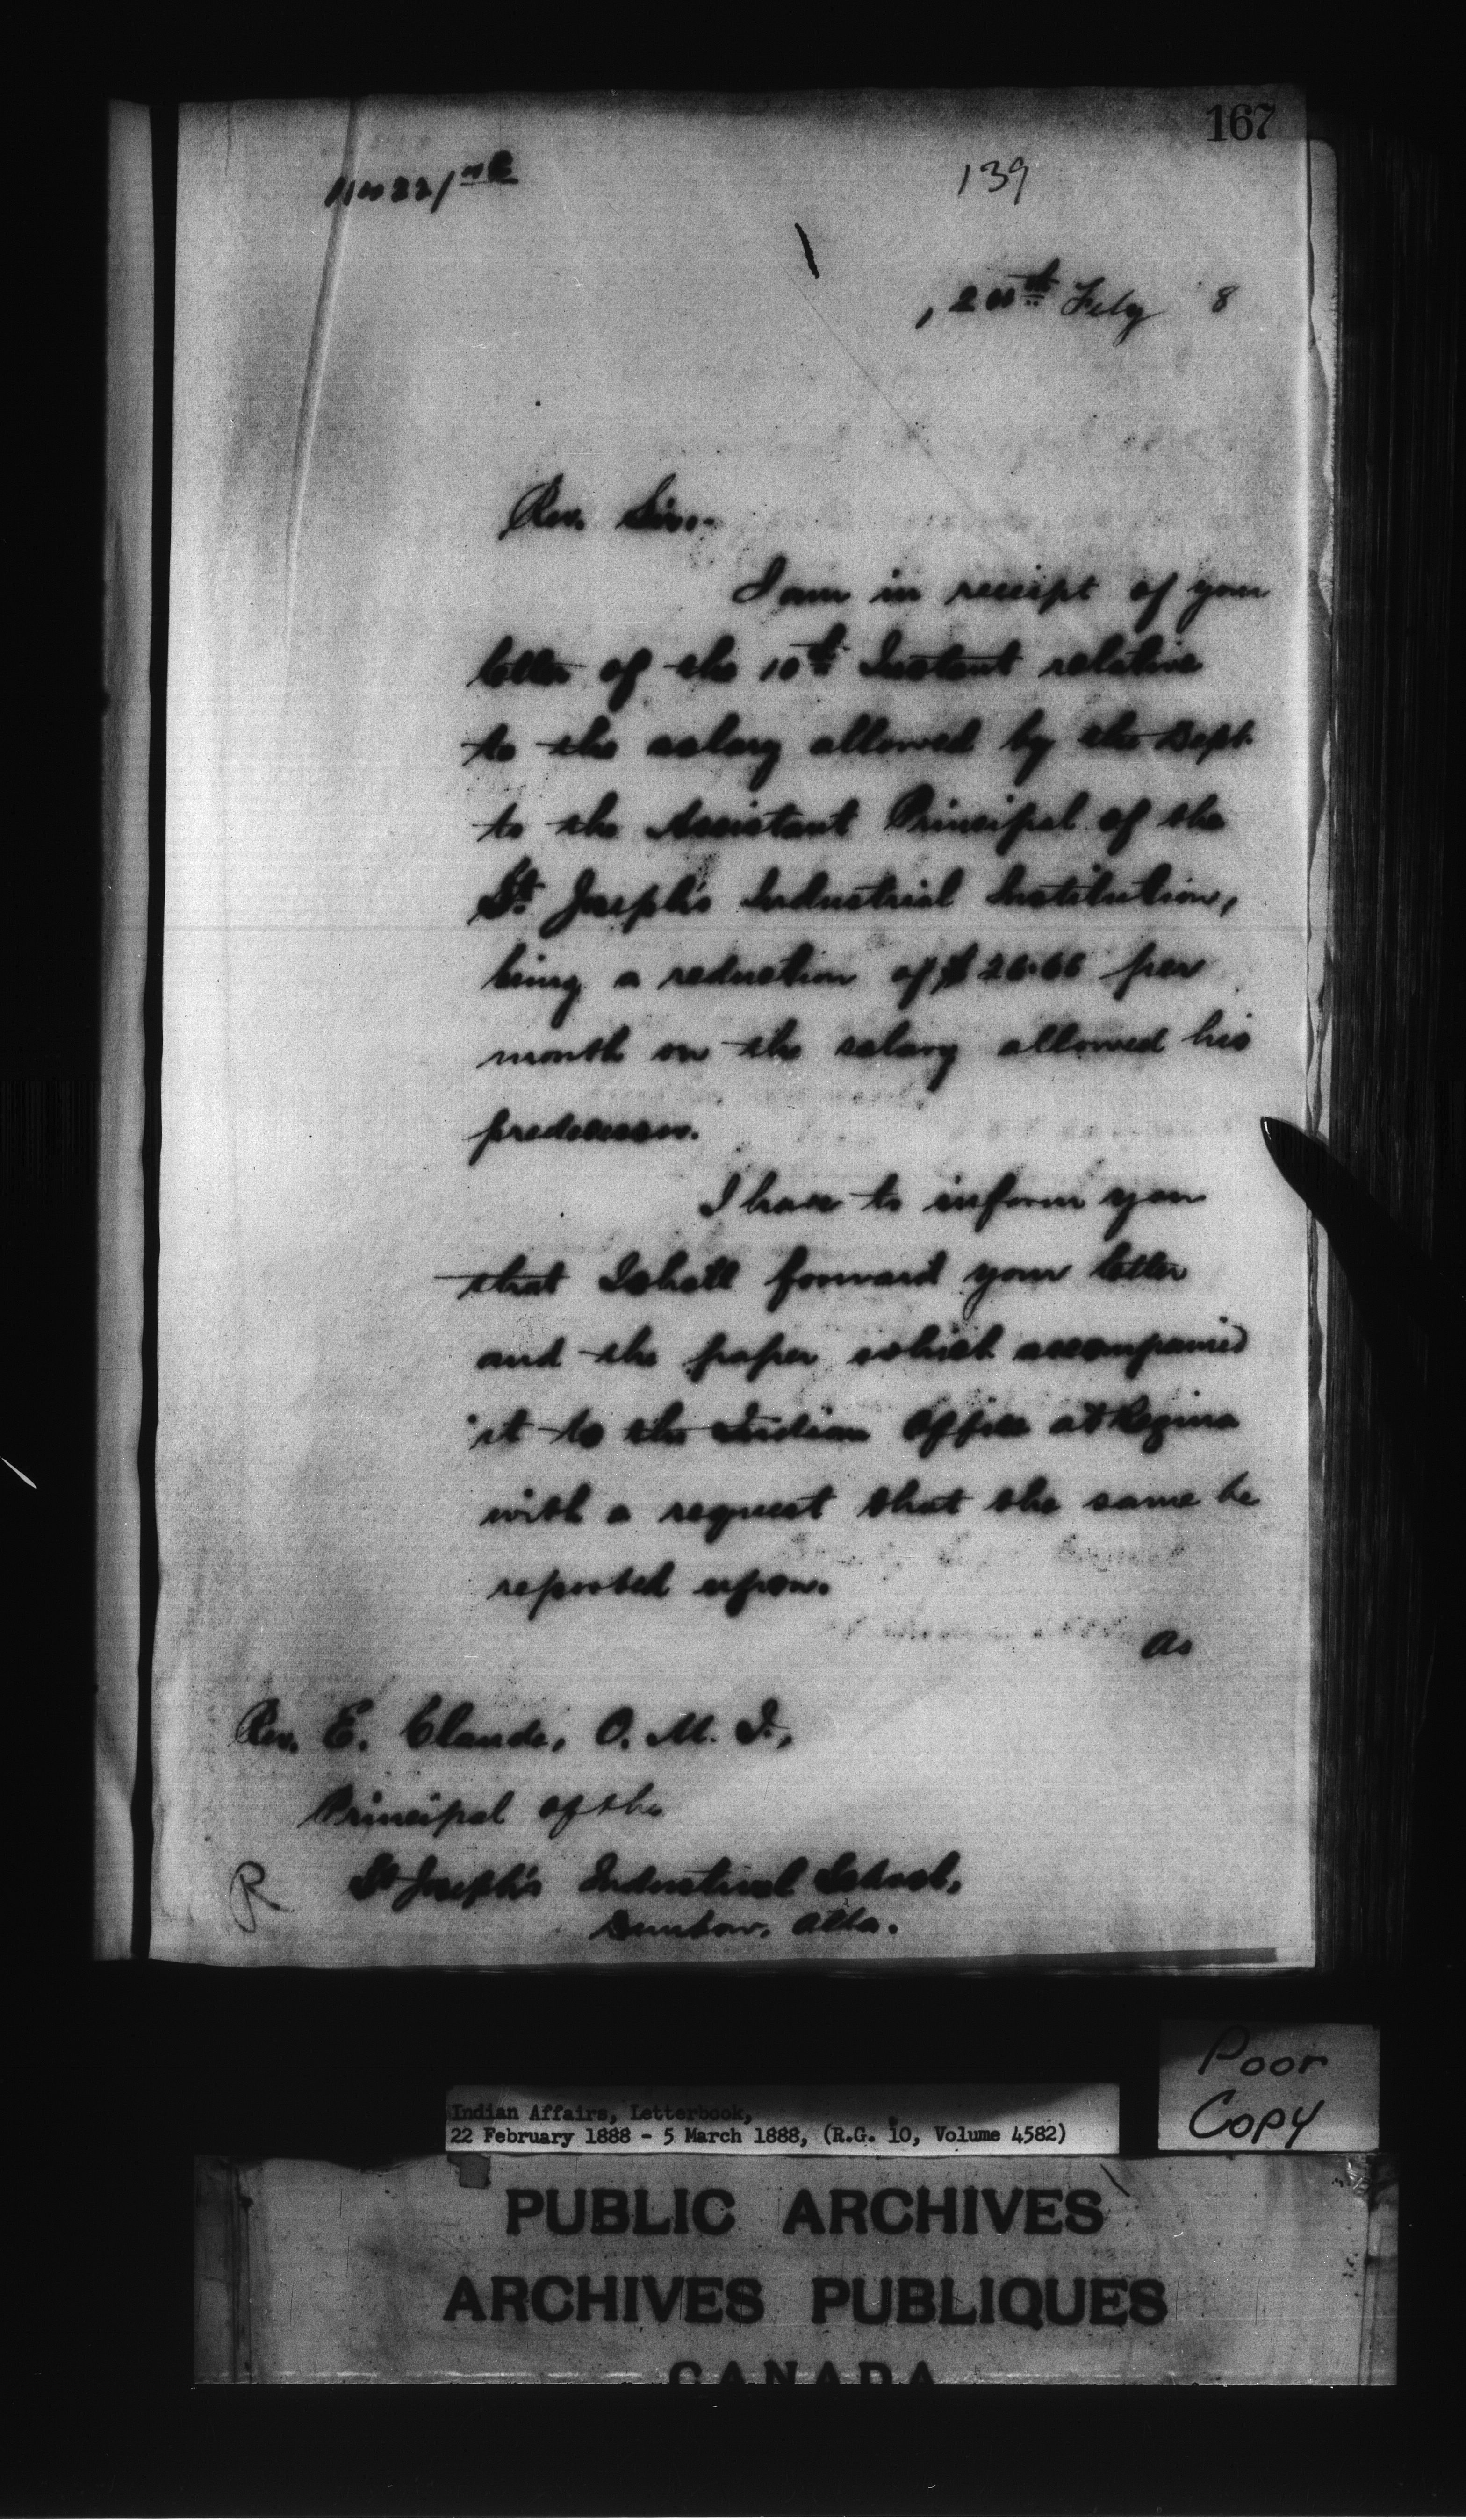 167
139
Feby 8
Rev. Sir:-
I am in receipt of your
letter of the 10th Instant relative
to the salary allowed by the Dept.
to the Assistant Principal of the
St. Joseph's Industrial Institution,
being a reduction of $26.66 per
month on the salary allowed his
predecessor.
I have to inform you
that I shall forward your letter
and the paper which accompanied
it to the Indian Office at Regina
with a request that the same be
reported upon.
As
Rev. E. Claude, O. M. I.,
Principal of the
R St Joseph's Industrial School,
Dunbow, Alta.
Poor
Copy
Indian Affairs, Letterbook,
22 February 1888 - 5 March 1888, (R.G. 10, Volume 4582)
PUBLIC ARCHIVES
ARCHIVES PUBLIQUES
CANADA